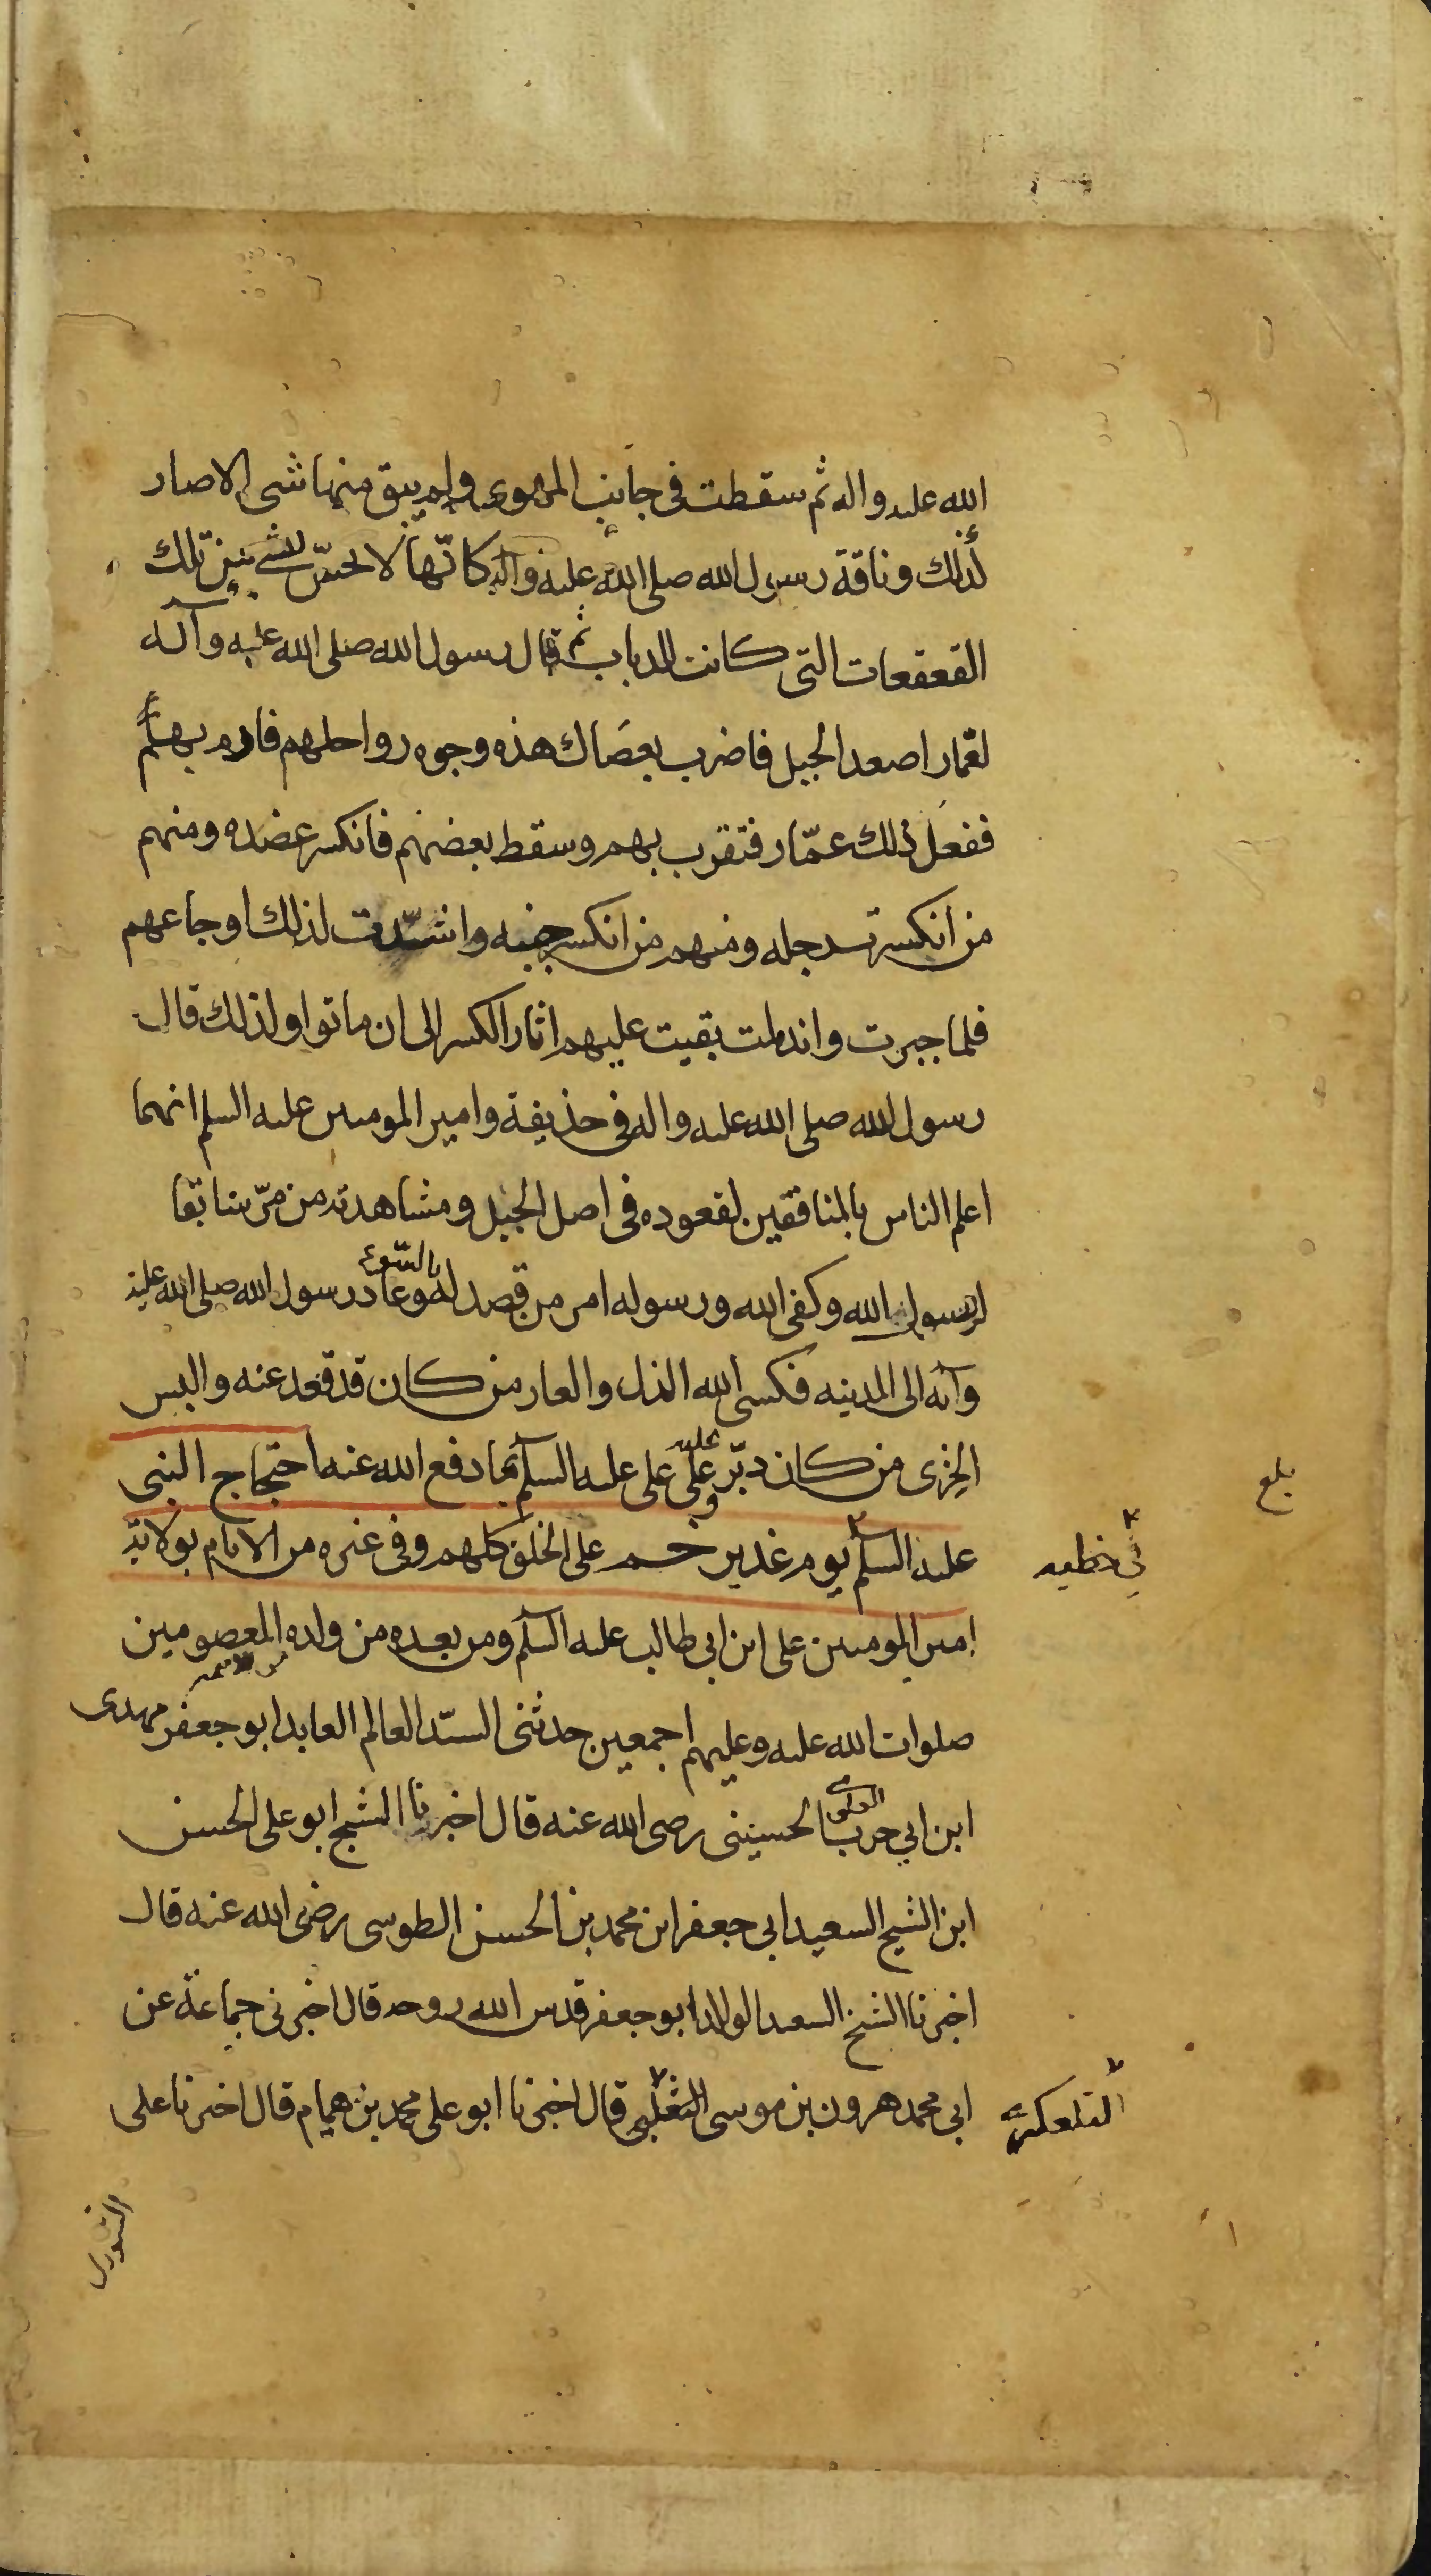 الله عليه واله ثم سقطت في جانب المهوى ولم يبق منها شى الا صار
لذلك وناقة رسول الله صلى الله عليه وآله كانّها لا تحسّ بشى من تلك
القعقعات التى كانت للدباب ثم قال رسول الله صلى الله عليه وآله
لعمار اصعد الجبل فاضرب بعصاك هذه وجوه رواحلهم فارم بهم
ففعل ذلك عمّار فتفرب بهم وسقط بعضهم فانكسر عضده ومنهم
من انكسرت رجله ومنهم من انكسر جنبه واشتدّت لذلك اوجاعهم
فلما جبرت واندملت بقيت عليهم اثار الكسر الى ان ماتوا ولذلك قال
رسول الله صلى الله عليه واله فى حذيفة وامير المومنين عليه السلم انهما
اعلم الناس بالمنافقين لقعوده فى اصل الجبل ومشاهدته من مرّ سابقا
لرسول الله وكفى الله ورسوله امر من قصد له بالسّوء وعاد رسول الله صلى الله عليه
وآله الى المدينه فكسى الله الذل والعار من كان قد قعد عنه والبس
الخزى من كان دبّر عليه وعلى على عليه السلم ما دفع الله عنه احتجاج النبى
عليه السلم يوم غدير خم على الخلق كلهم وفى غيره من الايام بولاية
امير المومنين على ابن ابى طالب عليه السلم ومن بعده من ولده المعصومين
من الائمه
صلوات الله عليه وعليهم اجمعين حدثنى السيّد العالم العابد ابو جعفر مهدى
ابن ابى حرب الحسينى رضى الله عنه قال اخبرنا الشيخ ابو على الحسن
ابن الشيخ السعيد ابى جعفر ابن محمد بن الحسن الطوسى رضى الله عنه قال
اخبرنا الشيخ السعيد الوالد ابو جعفر قدس الله روحه قال اخبرنى جماعة عن
ابى محمد هرون بن موسى التغلبى قال اخبرنا ابو على محمد بن همام قال اخبرنا على
بلغ
التلعكبرى